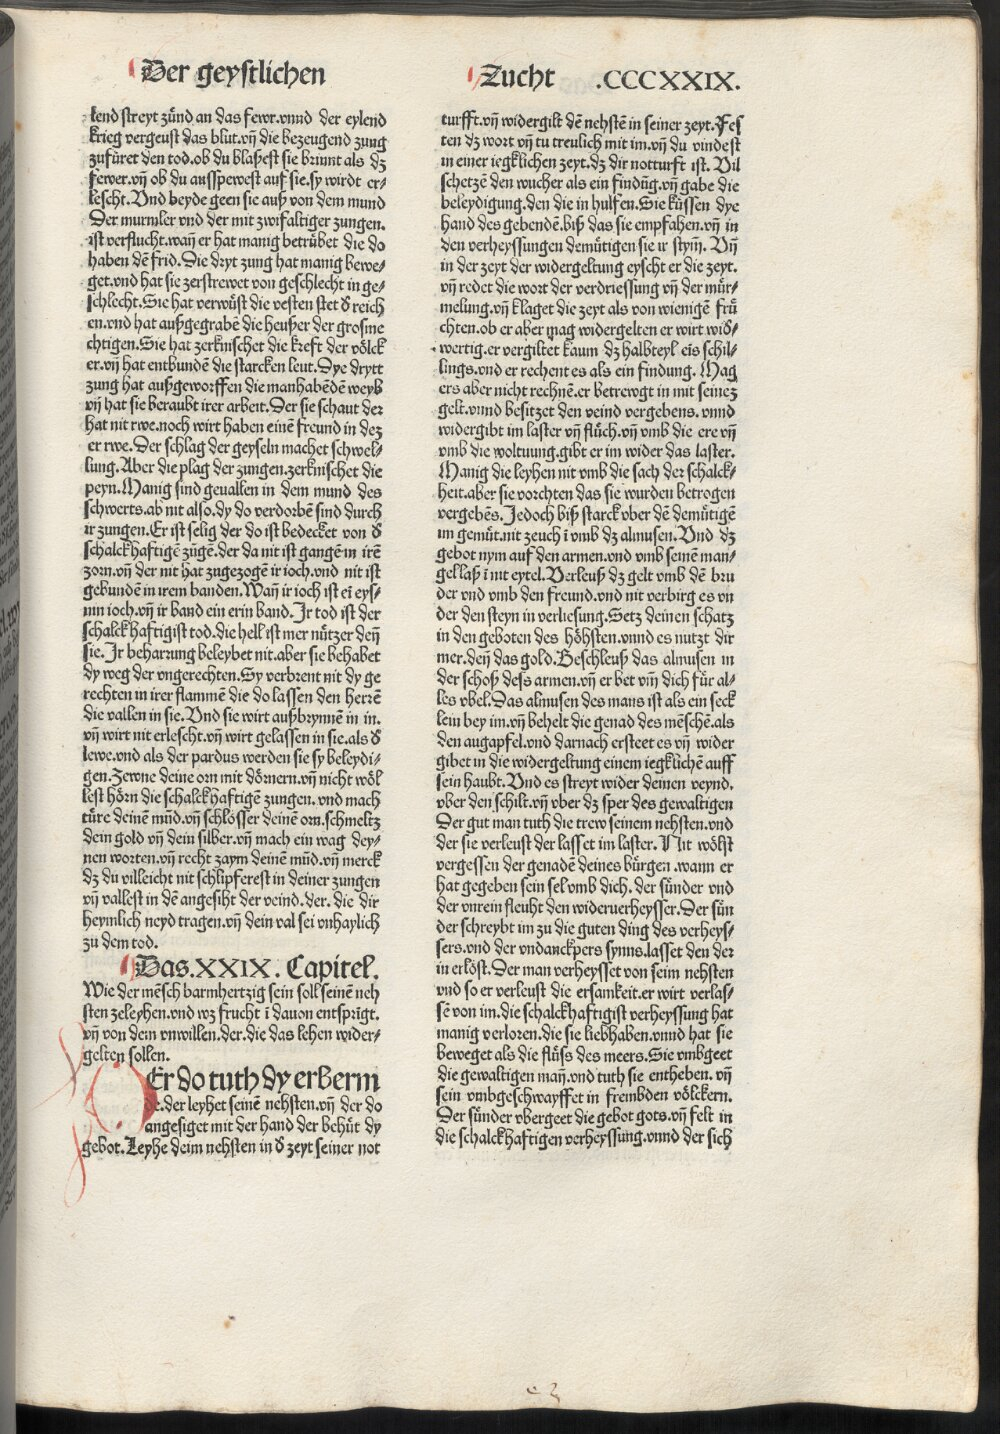 Der geystlichen
Zucht .CCCXXIX.
lend streyt zünd an das fewr.vnnd der eylend
krieg vergeust das blut.vñ die bezeugend zung
zufüret den tod.ob du blaßest sie brinnt als dz
fewer.vñ ob du ausspewest auf sie.sy wirdt er-
lescht.Vnd beyde geen sie auß von dem mund
Der murmler vnd der mit zwifaltiger zungen.
ist verflucht.wañ er hat manig betrübet die do
haben dē frid.Die dryt zung hat manig bewe-
get.vnd hat sie zerstrewet von geschlecht in ge-
schlecht.Sie hat verwüst die vesten stet d̕ reich
en.vnd hat außgegrabē die heußer der grosme
chtigen.Sie hat zerknischet die kreft der völck
er.vñ hat entbundē die starcken leut.Dye drytt
zung hat außgeworffen die manhabēdē weyb
vñ hat sie beraubt irer arbeit.Der sie schaut der
hat nit rwe.noch wirt haben einē freund in dez
er rwe.Der schlag der geyseln machet schwel-
lung.Aber die plag der zungen.zerknischet die
peyn.Manig sind geuallen in dem mund des
schwerts.ab nit also.dy do verdorbē sind durch
ir zungen.Er ist selig der do ist bedecket von d̕
schalckhaftigē zūgē.der da nit ist gangē in irē
zorn.vñ der nit hat zugezogē ir ioch.vnd nit ist
gebundē in irem banden.Wañ ir ioch ist eī eys-
nin ioch.vñ ir band ein erin band.Ir tod ist der
schalckhaftigist tod.die hell ist mer nützer deñ
sie.Ir beharrung beleybet nit.aber sie behabet
dy weg der vngerechten.Sy verbrent nit dy ge
rechten in irer flammē die do lassen den herrē
die vallen in sie.Vnd sie wirt außbrynnē in in.
vñ wirt nit erlescht.vñ wirt gelassen in sie.als d̕
lewe.vnd als der pardus werden sie sy beleydi-
gen.Zewne deine orn mit dörnern.vñ nicht wöl
lest hörn die schalckhaftigē zungen.vnd mach
türe deinē mūd.vñ schlösser deinē orn.schmeltz
dein gold vñ dein silber.vñ mach ein wag dey-
nen worten.vñ recht zaym deinē mūd.vñ merck
dz du villeicht nit schlipferest in deiner zungen
vñ vallest in dē angesiht der veind.der.die dir
heymlich neyd tragen.vñ dein val sei vnhaylich
zu dem tod.
Das.XXIX.Capitel.
Wie der mēsch barmhertzig sein soll seinē neh
sten zeleyhen.vnd wz frucht ī dauon entsprīgt.
vñ von dem vnwillen.der.die das lehen wider-
gelten sollen.
Er do tuth dy erberm
de.der leyhet seinē nehsten.vñ der do
angesiget mit der hand der behüt dy
gebot.Leyhe deim nehsten in d̕ zeyt seiner not
turfft.vñ widergilt dē nehstē in seiner zeyt.Fes
ten dz wort vñ tu treulich mit im.vñ du vindest
in einer iegklichen zeyt.dz dir notturft ist. Vil
schetzē den wucher als ein findūg.vñ gabe die
beleydigung.den die in hulfen.Sie küssen dye
hand des gebendē.biß das sie empfahen.vñ in
den verheyssungen demütigen sie ir stym̄. Vñ
in der zeyt der widergeltung eyscht er die zeyt.
vñ redet die wort der verdriessung vñ der mür-
melung.vñ klaget die zeyt als von wienigē frü
chten.ob er aber mag widergelten er wirt wid̕-
wertig.er vergiltet kaum dz halbteyl eīs schil-
lings.vnd er rechent es als ein findung. Mag
ers aber nicht rechnē.er betrewgt in mit seinez
gelt.vnnd besitzet den veind vergebens.vnnd
widergibt im laster vñ flüch.vñ vmb die ere vñ
vmb die woltuung.gibt er im wider das laster.
Manig die leyhen nit vmb die sach der schalck-
heit.aber sie vorchten das sie wurden betrogen
vergebēs.Jedoch biß starck vber dē demütigē
im gemüt.nit zeuch ī vmb dz almusen.Vnd dz
gebot nym auf den armen.vnd vmb seinē man-
gel laß ī nit eytel.Verleuß dz gelt vmb dē bru
der vnd vmb den freund.vnd nit verbirg es vn
der den steyn in verliesung.Setz deinen schatz
in den geboten des höhsten.vnnd es nutzt dir
mer.deñ das gold.Beschleuß das almusen in
der schoß dess armen.vñ er bet vm̄ dich für al-
les vbel.Das almusen des mans ist als ein seck
lein bey im.vñ behelt die genad des mēschē.als
den augapfel.vnd darnach ersteet es vñ wider
gibet in die widergeltung einem iegklichē auff
sein haubt.Vnd es streyt wider deinen veynd.
vber den schilt.vñ vber dz sper des gewaltigen
Der gut man tuth die trew seinem nehsten.vnd
der sie verleust der lasset im laster.Nit wölst
vergessen der genadē deines bürgen.wann er
hat gegeben sein sel vmb dich.der sünder vnd
der vnrein fleuht den wideruerheysser.Der sün
der schreybt im zu die guten ding des verheys-
sers.vnd der vndanckpers synns.lasset den der
in erlöst.Der man verheysset von seim nehsten
vnd so er verleust die ersamkeit.er wirt verlas-
sē von im.die schalckhaftigist verheyssung hat
manig verloren.die sie liebhaben.vnnd hat sie
beweget als die flüss des meers.Sie vmbgeet
die gewaltigen mañ.vnd tuth sie entheben.vñ
sein vmbgeschwayffet in frembden völckern.
Der sünder vbergeet die gebot gots.vñ felt in
die schalckhaftigen verheyssung.vnnd der sich